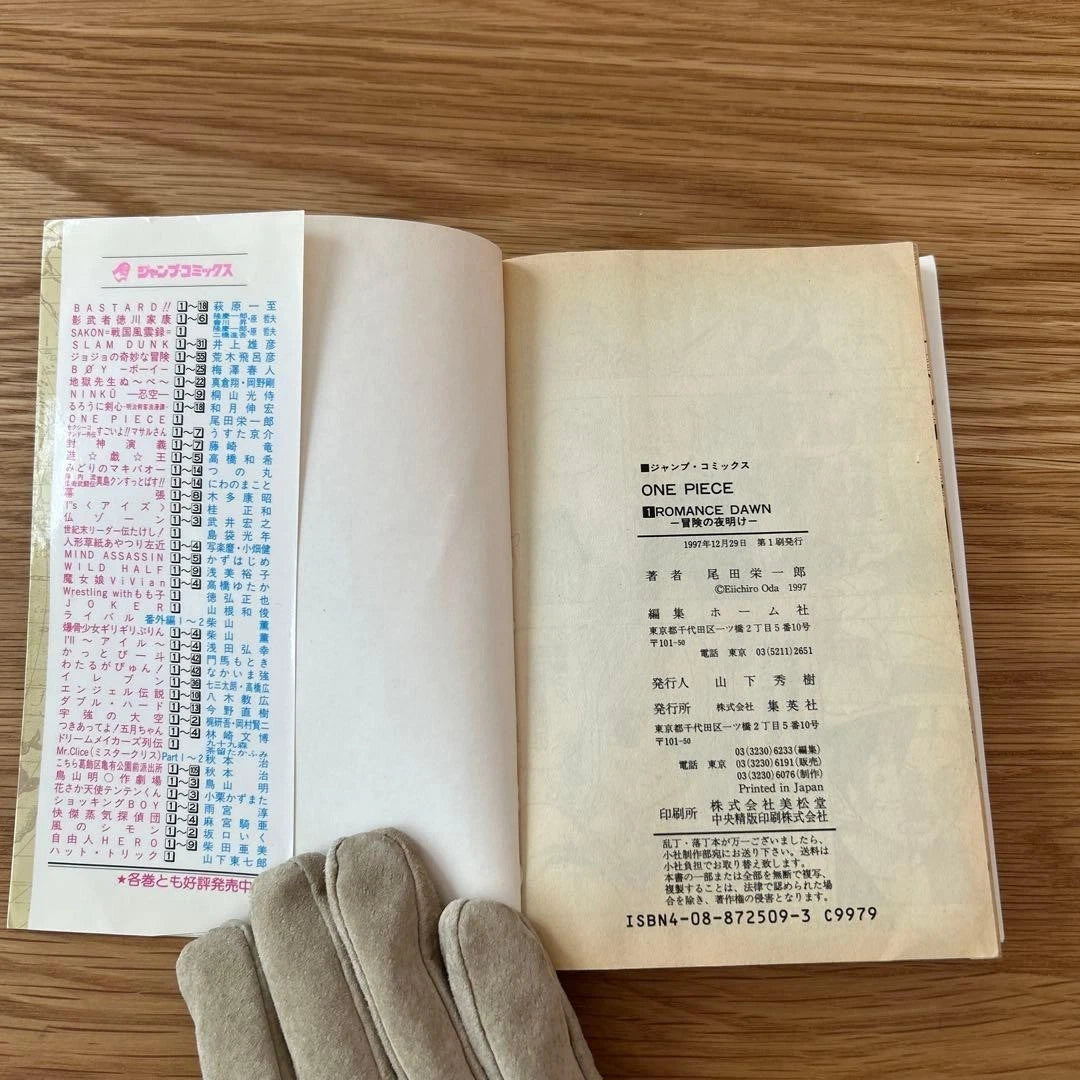 ジャンプ・コミックス
BASTARD!! 1〜18 萩原一至
影武者徳川家康 1〜6 隆慶一郎・原哲夫 會川昇
SAKON=戦国風雲録= 1 隆慶一郎・原哲夫 二橋進吾
SLAM DUNK 1〜31 井上雄彦
ジョジョの奇妙な冒険 1〜55 荒木飛呂彦
BØY −ボーイ− 1〜25 梅澤春人
地獄先生ぬ〜べ〜 1〜22 真倉翔・岡野剛
NINKŪ —忍空— 1〜9 桐山光侍
るろうに剣心−明治剣客浪漫譚− 1〜18 和月伸宏
ONE PIECE 1 尾田栄一郎
セクシーコマンドー外伝 すごいよ!!マサルさん 1〜7 うすた京介
封神演義 1〜7 藤崎竜
遊☆戯☆王 1〜5 高橋和希
みどりのマキバオー 1〜14 つの丸
陣内流柔術武闘伝 真島クンすっとばす!! 1〜14 にわのまこと
幕張 1〜9 木多康昭
I"s〈アイズ〉 1〜3 桂正和
仏ゾーン 1〜3 武井宏之
世紀末リーダー伝たけし! 1 島袋光年
人形草紙あやつり左近 1〜4 写楽麿・小畑健
MIND ASSASSIN 1〜5 かずはじめ
WILD HALF 1〜9 浅美裕子
魔女娘ViVian 1〜4 高橋ゆたか
Wrestling withもも子 1 徳弘正也
JOKER 1 山根和俊
ライバル 番外編1〜2 柴山薫
爆骨少女ギリギリぷりん 1〜4 柴山薫
I'll〜アイル〜 1〜4 浅田弘幸
かっとび一斗 1〜42 門馬もとき
わたるがぴゅん! 1〜42 なかいま強
イレブン 1〜36 七三太朗・高橋広
エンジェル伝説 1〜10 八木教広
ダブル・ハード 1〜13 今野直樹
宇強の大空 1〜2 梶研吾・岡村賢二
つきあってよ!五月ちゃん 1〜4 林崎文博
ドリームメイカーズ列伝 1 九十九森 茶留たかふみ
Mr.Clice(ミスタークリス) Part1〜2 秋本治
こちら葛飾区亀有公園前派出所 1〜102 秋本治
鳥山明○作劇場 1〜3 鳥山明
花さか天使テンテンくん 1〜3 小栗かずまた
ショッキングBOY 1〜2 雨宮淳
快傑蒸気探偵団 1〜4 麻宮騎亜
風のシモン 1〜2 坂口いく
自由人HERO 1〜9 柴田亜美
ハット・トリック 1 山下東七郎
★各巻とも好評発売中
■ジャンプ・コミックス
ONE PIECE
1 ROMANCE DAWN
−冒険の夜明け−
1997年12月29日 第1刷発行
著者 尾田栄一郎
©Eiichiro Oda 1997
編集 ホーム社
東京都千代田区一ツ橋2丁目5番10号
〒101-50
電話 東京 03(5211)2651
発行人 山下秀樹
発行所 株式会社 集英社
東京都千代田区一ツ橋2丁目5番10号
〒101-50
03(3230)6233(編集)
電話 東京 03(3230)6191(販売)
03(3230)6076(制作)
Printed in Japan
印刷所 株式会社美松堂
中央精版印刷株式会社
乱丁・落丁本が万一ございましたら、
小社制作部宛にお送り下さい。送料は
小社負担でお取り替え致します。
本書の一部または全部を無断で複写、
複製することは、法律で認められた場
合を除き、著作権の侵害となります。
ISBN4-08-872509-3 C9979